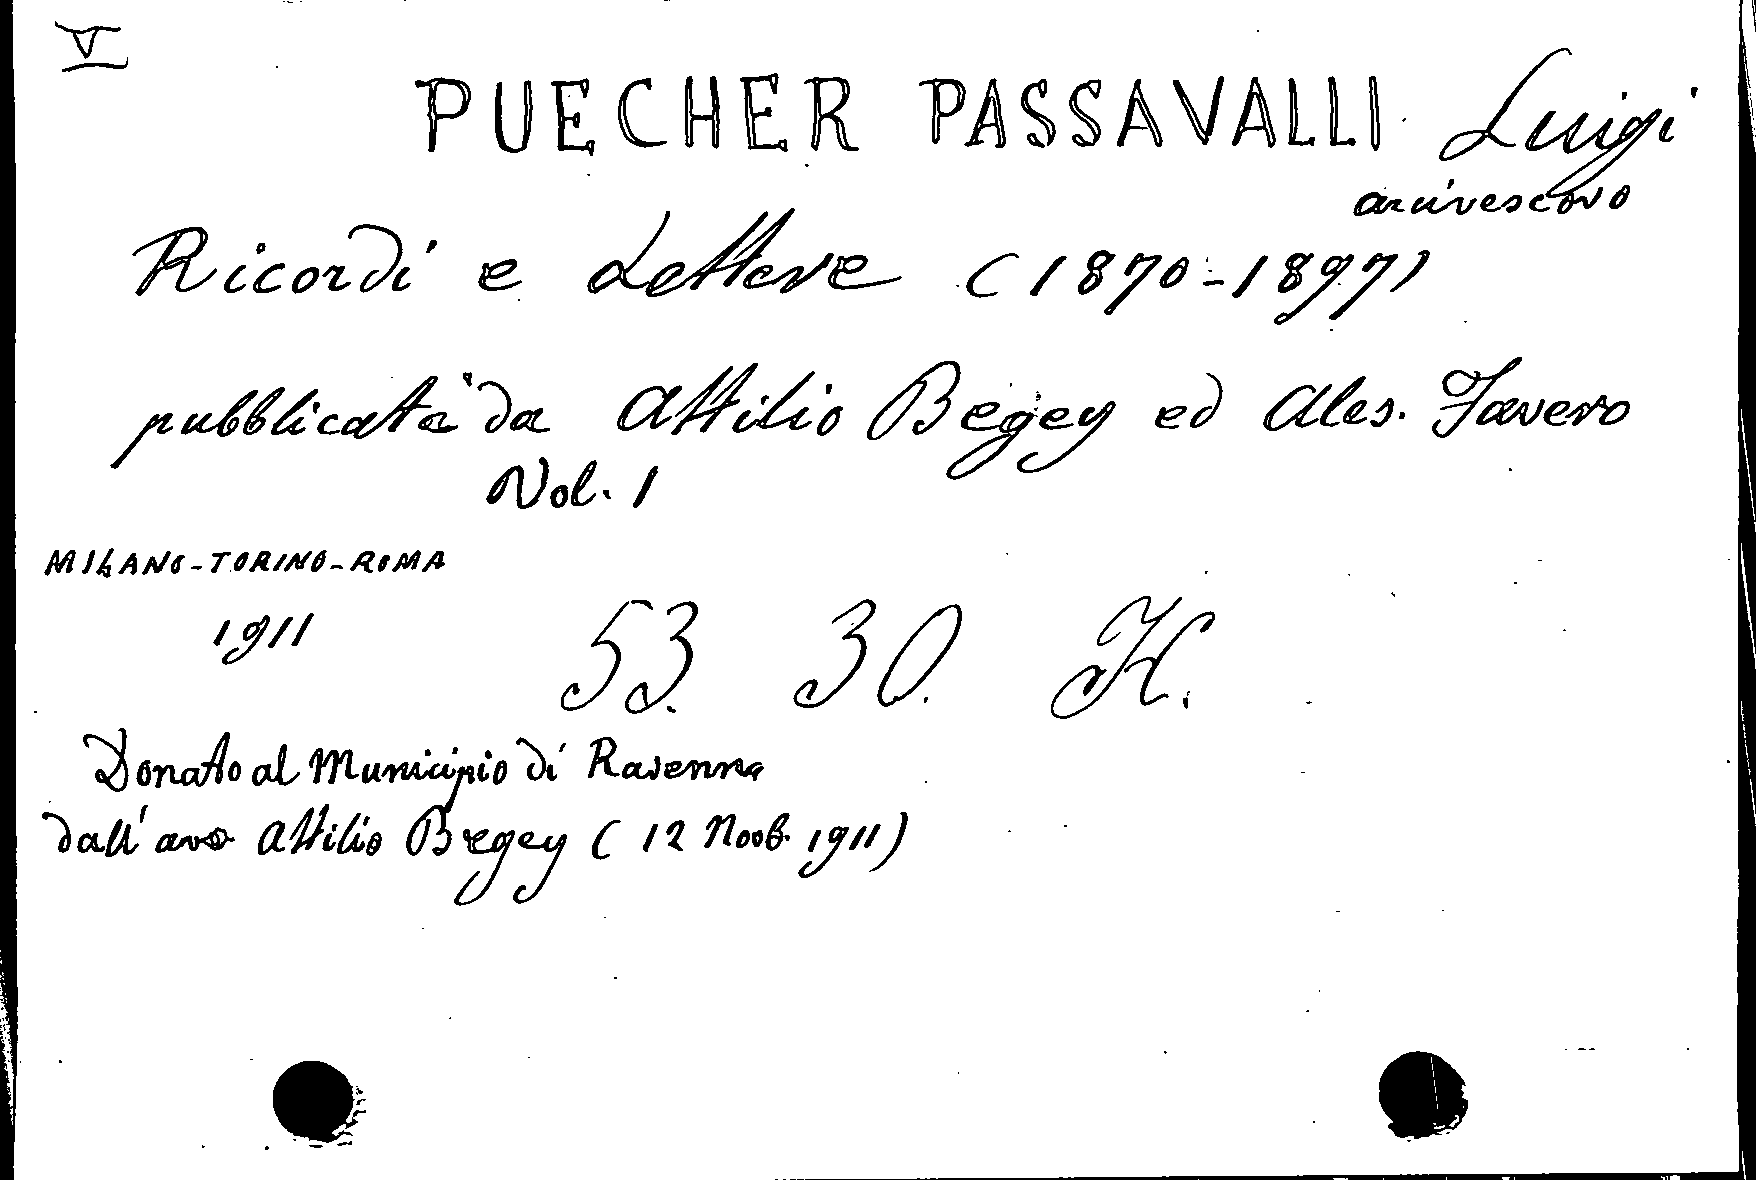 V
PUECHER PASSAVALLI Luigi
arcivescovo
Ricordi e Lettere (1870-1897)
pubblicata da Attilio Begey ed Ales. Favero
Vol. 1
MILANO-TORINO-ROMA
1911
53. 30. K.
Donato al Municipio di Ravenna
dall'avo Attilio Begey (12 Novb. 1911)